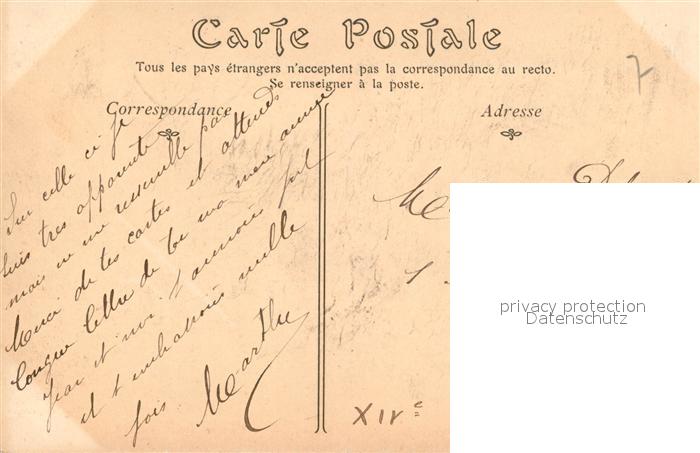 Carte Postale
Tous les pays étrangers n'acceptent pas la correspondance au recto.
Se renseigner à la poste.
Correspondance
Adresse
7
Sur celle ci je
suis tres apparente
mais ne me ressemble pas
Merci de tes cartes et attends
longue lettre de toi ma mère
Jean et moi t'aimons fort
et t'embrassons mille
fois Marthe
XIVe
privacy protection
Datenschutz